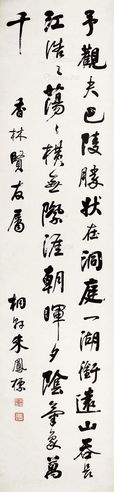 予觀夫巴陵勝狀在洞庭一湖銜遠山吞長
江浩〻蕩〻橫無際涯朝暉夕陰氣象萬
千
香林賢友屬
桐軒朱鳳標